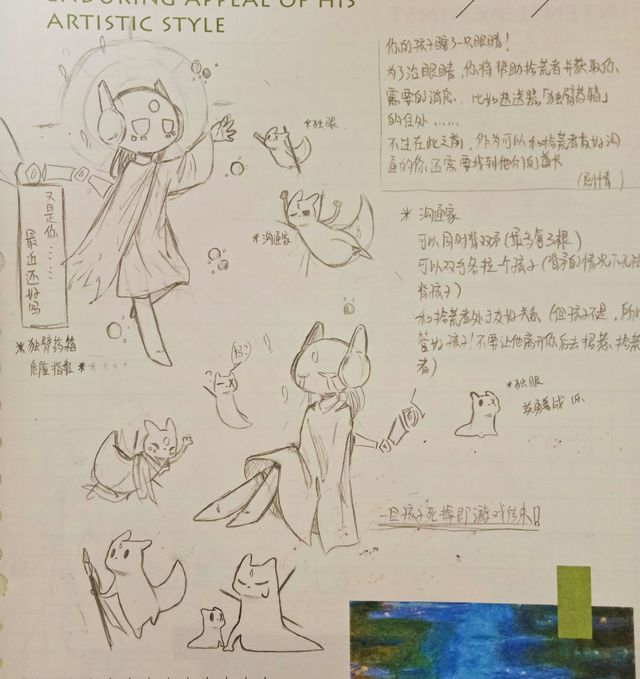 ENDURING APPEAL OF HIS
ARTISTIC STYLE
你的孩子瞎了一只眼睛!
为了治眼睛,你将帮助拾荒者并获取你
需要的消息、比如投送器「独臂药箱」
的住处……
不过在此之前,作为可以和拾荒者友好沟
通的你,还需要找到他们的酋长
(剧情)
*独眼
*沟通家
*沟通家
可以同时背双矛(最多每3根)
可以双手各拉一个孩子(背矛的情况下无法
背孩子)
和拾荒者处于友好关系(但孩子不是,所以
管好孩子!不要让他离开你后去招惹拾荒
者)
又是你……
最近还好吗
*独臂药箱
危险指数*****
*独眼
一旦孩子死掉即游戏结束!